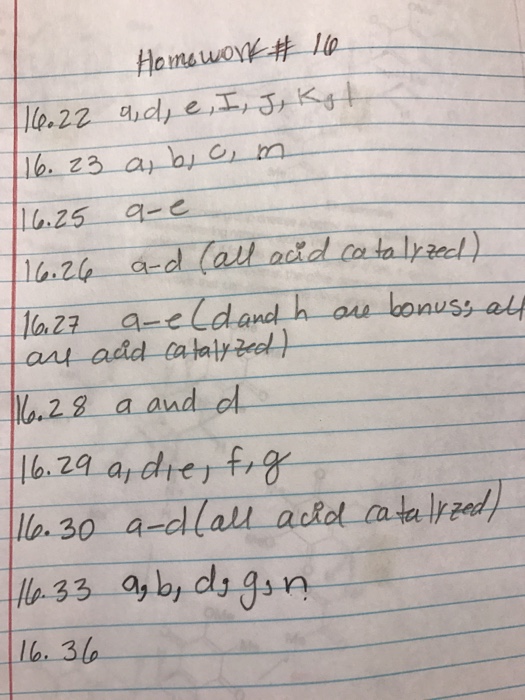 Homework # 16
16.22 a,d, e, I, J, K, l
16. 23 a, b, c, m
16.25 a-e
16.26 a-d (all acid catalyzed)
16.27 a-e (d and h are bonus; all
are acid catalyzed)
16.28 a and d
16.29 a, d, e, f, g
16.30 a-d (all acid catalyzed)
16.33 a, b, d, g, n
16. 36